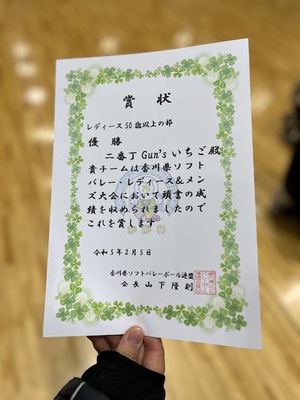 賞状
レディース50歳以上の部
優勝
二番丁Gun'sいちご殿
貴チームは香川県ソフト
バレー レディース&メン
ズ大会において頭書の成
績を収められましたので
これを賞します
令和5年2月5日
香川県ソフトバレーボール連盟
会長山下隆則